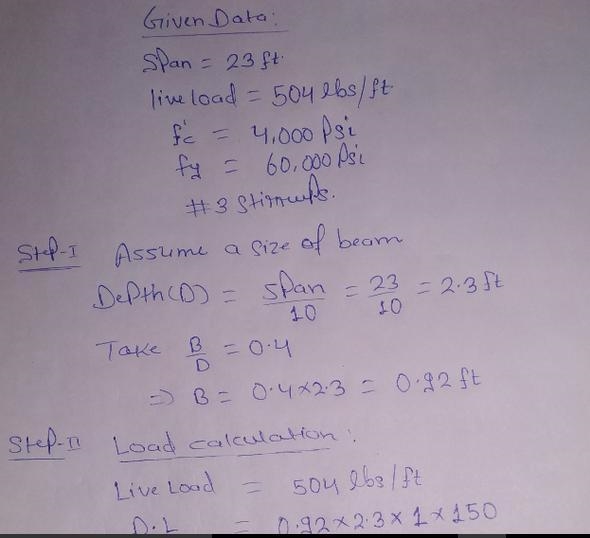 Given Data:
Span = 23 ft.
live load = 504 lbs/ft.
f'c = 4,000 Psi
fy = 60,000 Psi
#3 Stirrups.
Step-I Assume a size of beam
Depth(D) = Span/10 = 23/10 = 2.3 ft
Take B/D = 0.4
=> B = 0.4×2.3 = 0.92 ft
Step-II Load calculation:
Live Load = 504 lbs/ft
D.L = 0.92×2.3×1×150